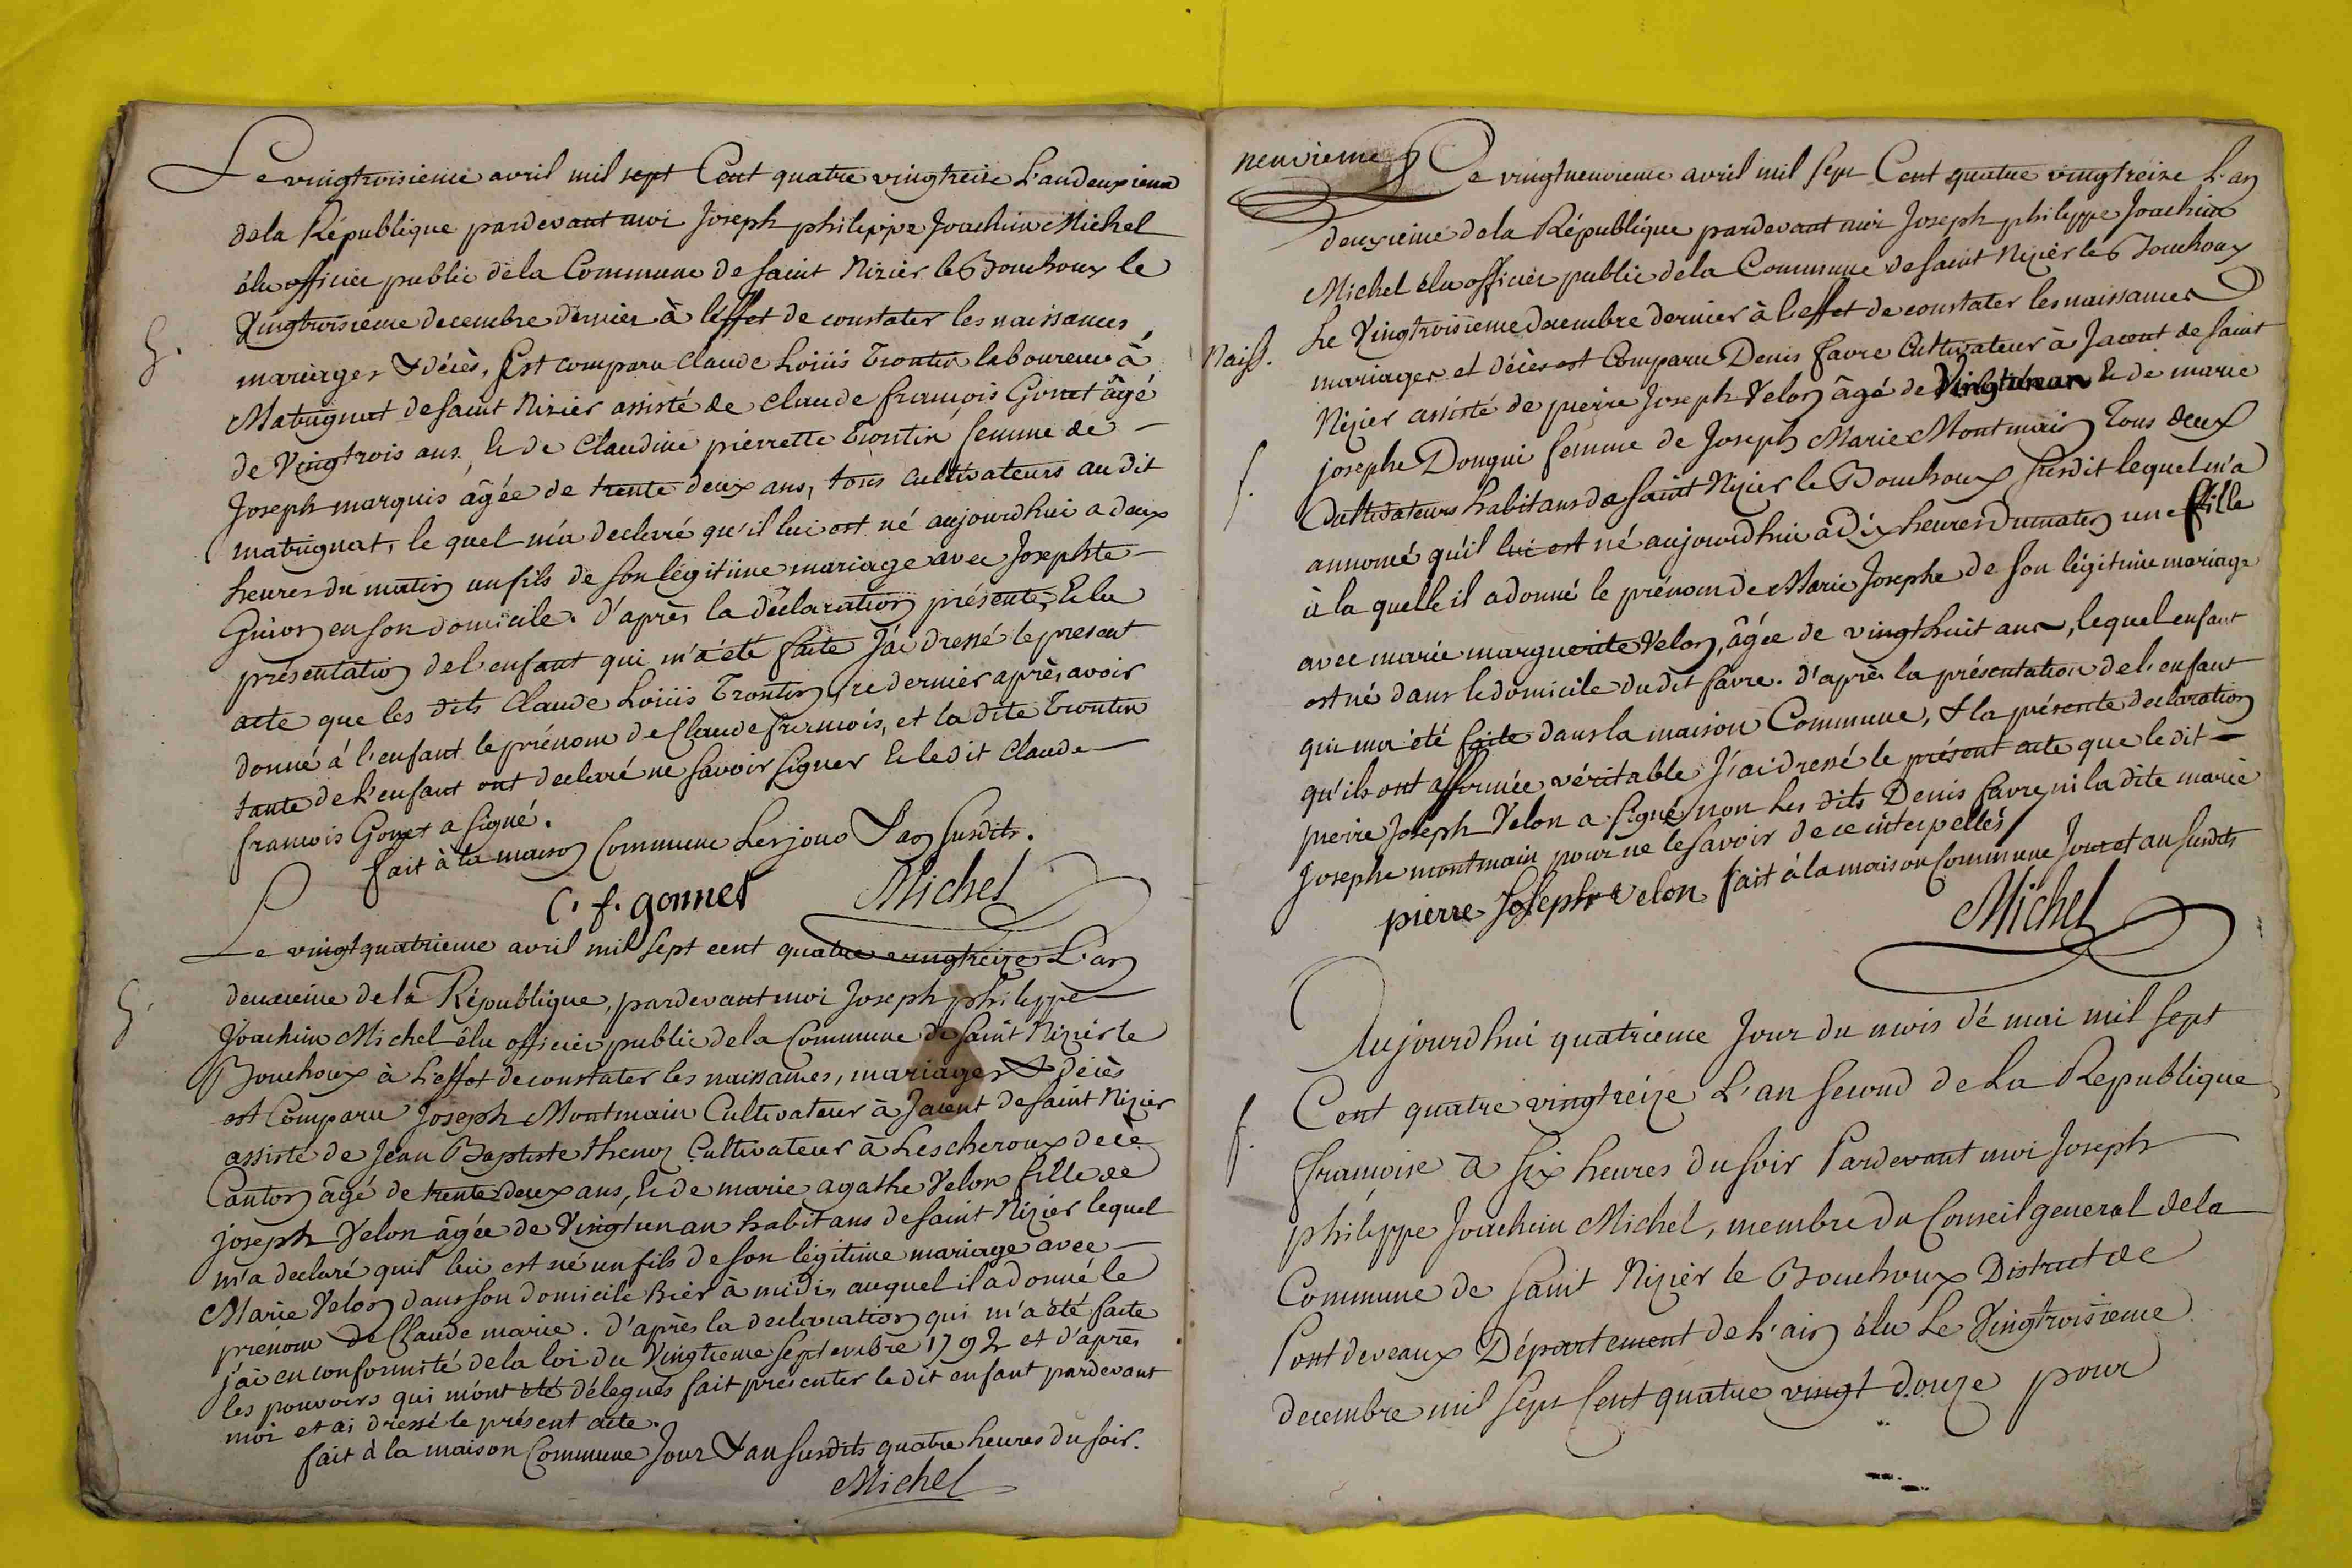 Le vingttroisieme avril mil sept Cent quatre vingtreize L'an deuxieme
dela République pardevant moi Joseph philippe Joachim Michel
élu officier public dela Commune de saint Nizier le Bouchoux le
Vingtroisieme decembre dernier à l'effet de constater les naissances,
G.
mariages & décès, Est comparu Claude Loüis Trontin laboureur à
Matrignat de saint Nizier assisté de claude françois Gonet âgé
de Vingtrois ans, & de Claudine pierrette Trontin femme de
Joseph marquis âgée de trente deux ans, tous cultivateurs au dit
matrignat, le quel m'a declaré qu'il lui est né aujourdhui a deux
heures du matin un fils de son légitime mariage avec Josephte
Guion en son domicile. D'après la déclaration présente, & la
présentation de l'enfant qui m'a été faite J'ai dressé le present
acte que les dits Claude Loüis Trontin, ce dernier après avoir
donné à l'enfant le prénom de Claude francois, et la dite Trontin
tante de l'enfant ont declaré ne savoir signer & le dit Claude
francois Gonet a signé.
fait à la maison Commune Les jour & an susdits.
C. f. gonnet Michel
Le vingtquatrieme avril mil sept cent quatre vingtreize L'an
deuxieme de la République, pardevant moi Joseph philippe
G.
Joachim Michel élu officier public dela Commune de saint Nizier le
Bouchoux à l'effet de constater les naissances, mariages & décès
est Comparu Joseph Montmain Cultivateur à Jacent de saint Nizier
assisté de Jean Baptiste thenoz Cultivateur à Lescheroux de ce
Canton âgé de trente deux ans, & de marie agathe Velon fille de
joseph Velon âgée de Vingt un an habitans de saint Nizier lequel
m'a declaré quil lui est né un fils de son légitime mariage avec
Marie Velon dans son domicile hier à midi, auquel il a donné le
prénom de Claude marie. D'après la declaration qui m'a été faite
j'ai en conformité de la loi du Vingtieme septembre 1792 et d'après
les pouvoirs qui m'ont été délegués fait presenter le dit enfant pardevant
moi et ai dressé le présent acte.
fait à la maison Commune Jour & an susdits quatre heures du soir.
Michel
neuvieme Le vingtneuvieme avril mil sept Cent quatre vingtreize L'an
deuxieme dela République pardevant moi Joseph philippe Joachim
Michel élu officier public dela Commune de saint Nizier le Bouchoux
Le Vingtroisieme decembre dernier à l'effet de constater les naissances
Naiss.
mariages et décès est Comparu Denis favre Cultivateur à Jacont de saint
Nizier assisté de pierre Joseph Velon âgé de Vingtunan & de marie
f.
josephe Dongui femme de Joseph Marie Montmain Tous deux
Cultivateurs habitans de saint Nizier le Bouchoux susdit lequel m'a
annoncé qu'il lui est né aujourdhui à Dix heures du matin une fille
à la quelle il a donné le prénom de Marie Josephe de son légitime mariage
avec marie marguerite Velon, âgée de vingthuit ans, lequel enfant
est né dans le domicile du dit favre. d'après la présentation de l'enfant
qui m'a été faite dans la maison Commune, & la présente declaration
qu'ils ont affirmée véritable J'ai dressé le présent acte que le dit
pierre Joseph Velon a signé non Les dits Denis favre, ni la dite marie
Josephe montmain pour ne le savoir de ce interpellés
fait à la maison Commune Jour et an susdits
pierre Joseph velon
Michel
Aujourdhui quatrieme Jour du mois de mai mil sept
Cent quatre vingtreize L'an second de La Republique
f.
francoise à six heures du soir Pardevant moi Joseph
philippe Joachim Michel, membre du Conseil general dela
Commune de saint Nizier le Bouchoux District de
Pont devaux Département de L'ain élu Le Vingtroisieme
decembre mil sept Cent quatre vingt douze pour